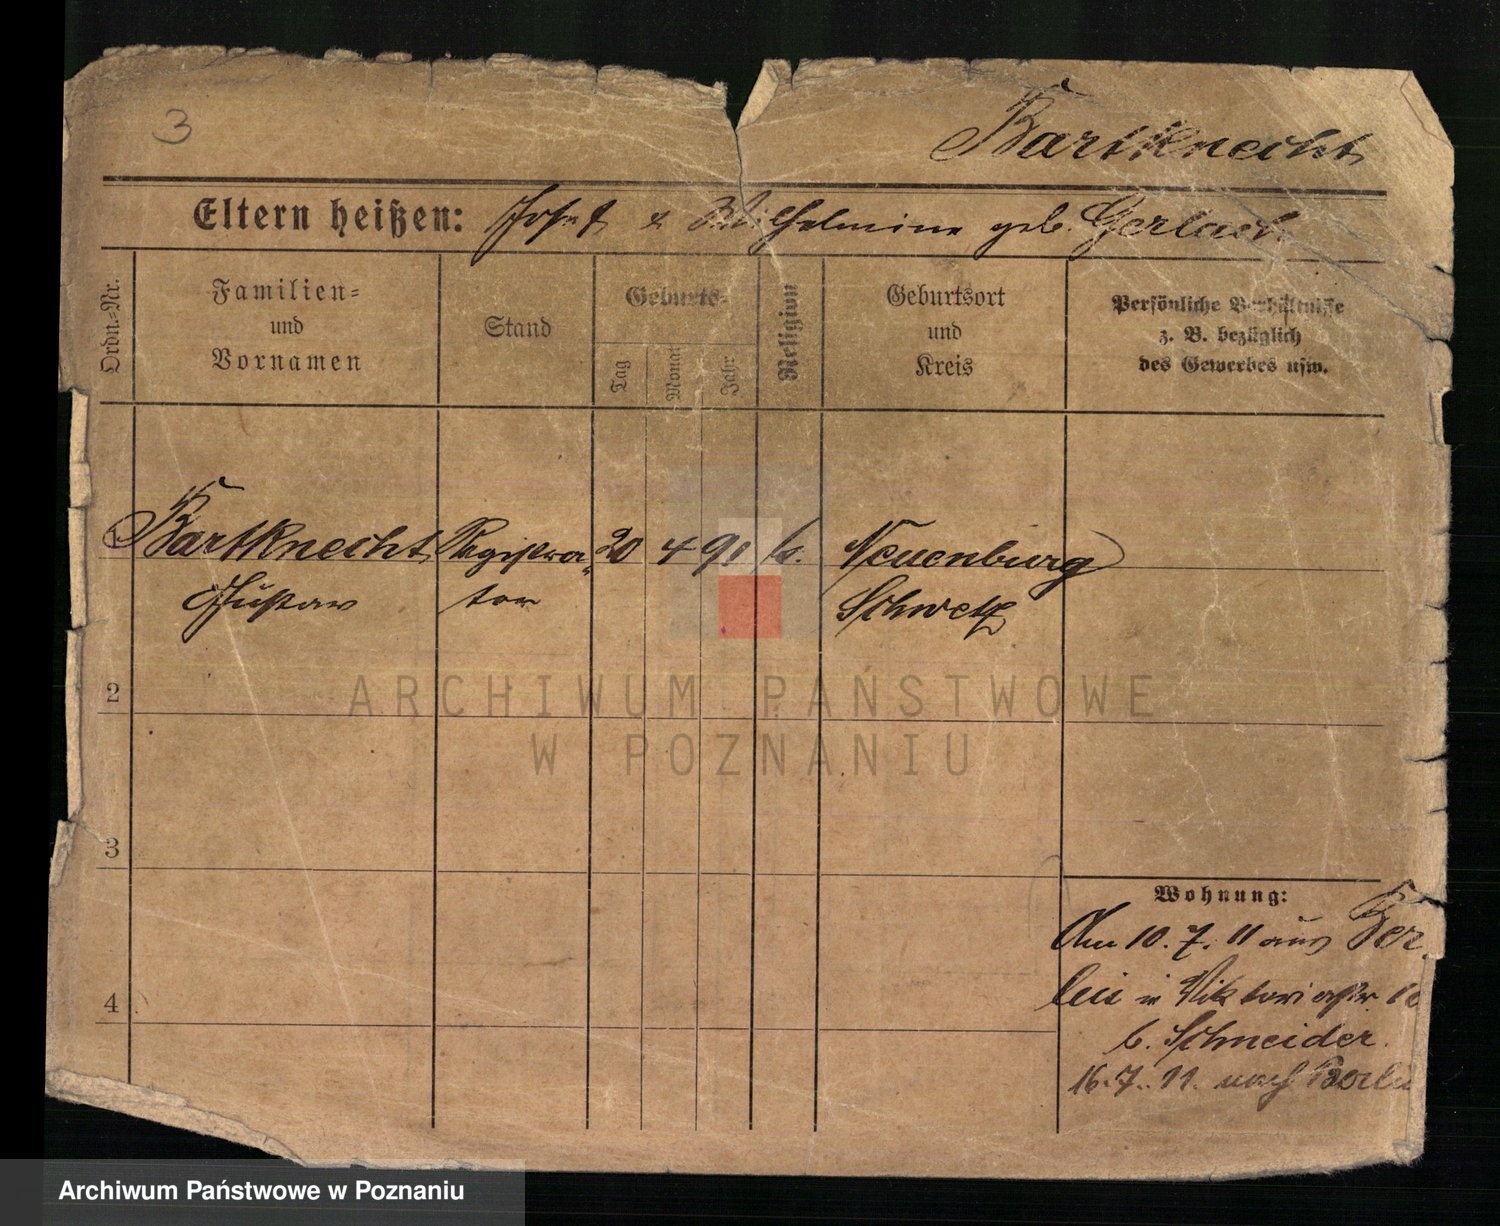 3
Bartknecht
Eltern heißen: Josef & Wilhelmine geb. Gerlach
Ordn.-Nr.
Familien-
und
Vornamen
Stand
Geburts-
Tag
Monat
Jahr
Religion
Geburtsort
und
Kreis
Persönliche Verhältnisse
z. B. bezüglich
des Gewerbes usw.
1 Bartknecht Registra- 20 4 91 k. Neuenburg
Gustav tor Schwetz
2
ARCHIWUM PAŃSTWOWE
W POZNANIU
3
4
Wohnung:
Am 10. 7. 11 aus Ber
lin in Viktoriastr
b. Schneider.
16. 7. 11. nach Berlin
Archiwum Państwowe w Poznaniu